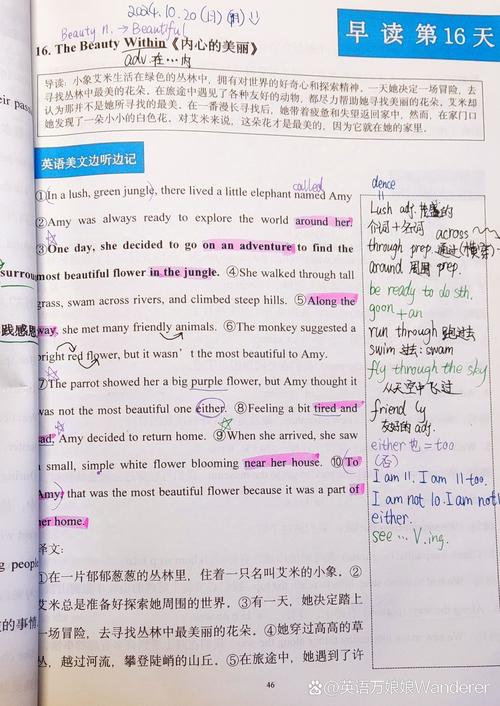 2024.10.20 (日)
Beauty n. → Beautiful
早读第16天
16. The Beauty Within《内心的美丽》
adv. 在…内
导读：小象艾米生活在绿色的丛林中，拥有对世界的好奇心和探索精神。一天她决定一场冒险，去
寻找丛林中最美的花朵。在旅途中遇见了各种友好的动物，都尽力帮助她寻找美丽的花朵。艾米却
认为那并不是她所寻找的最美。在一番漫长寻找后，她带着疲惫和失望返回家中，然而，在家门口
她发现了一朵小小的白色花。对艾米来说，这朵花才是最美的，因为它就在她的家里。
英语美文边听边记
called
①In a lush, green jungle, there lived a little elephant named Amy
②Amy was always ready to explore the world around her.
③One day, she decided to go on an adventure to find the
most beautiful flower in the jungle. ④She walked through tall
grass, swam across rivers, and climbed steep hills. ⑤Along the
way, she met many friendly animals. ⑥The monkey suggested a
bright red flower, but it wasn't the most beautiful to Amy.
⑦The parrot showed her a big purple flower, but Amy thought it
was not the most beautiful one either. ⑧Feeling a bit tired and
sad, Amy decided to return home. ⑨When she arrived, she saw
a small, simple white flower blooming near her house. ⑩To
Amy, that was the most beautiful flower because it was a part of
her home.
译文：
①在一片郁郁葱葱的丛林里，住着一只名叫艾米的小象。②
艾米总是准备好探索她周围的世界。③有一天，她决定踏上
一场冒险，去寻找丛林中最美丽的花朵。④她穿过高高的草
丛，越过河流，攀登陡峭的山丘。⑤在旅途中，她遇到了许
46
dence
Lush adj. 茂盛的
介词+名词
across
through prep. 通过(横穿)
around 周围 prep.
be ready to do sth.
go on + an
run through 跑过去
swim 过去: swam
fly through the sky
从天空中飞过
friend ly
友好的 adj.
either 也 = too
(否)
I am 11. I am 11 too.
I am not 10. I am not 11
either.
see … V.ing.
their passi
surroun
践感恩
g people
的事情
@英语万娘娘Wanderer